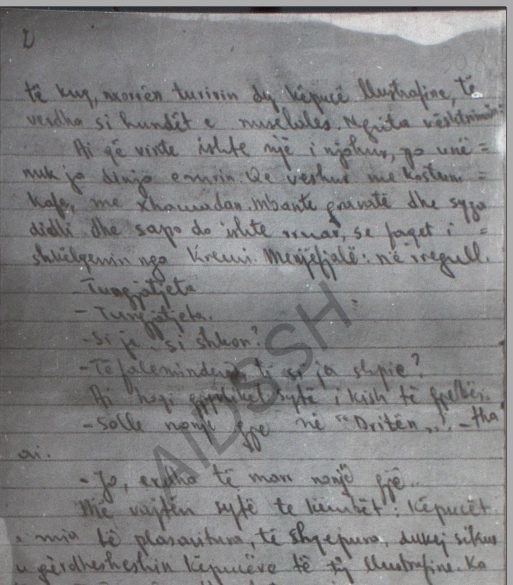 2
të kuq, nxorrën turirin dy këpucë llustrafine, të
verdha si hundët e nuselalës. Ngrita vështrimin:
Ai që vinte ishte një i njohur, po unë
nuk ja dinja emrin. Qe veshur me kostum
kafe, me xhamadan. Mbante gravatë dhe syze
dielli dhe sapo do ishte rruar, se faqet i
shkëlqenin nga kremi. Menjëfjalë: në rregull.
- Tungjatjeta
- Tungjatjeta.
- Si je, si shkon?
- Të falemnderit, ti si ja shpie?
Ai hoqi syzet, sytë i kish të gjelbër.
- Solle nonjë gjë në "Dritën"? - tha
ai.
- Jo, erdha të marr nonjë gjë.
Më vajtën sytë te këmbët: Këpucët
e mia të plasaritura, të shqepura, dukej sikur
u gërdhesheshin këpucëve të tij llustrafine. Ka
AIDSSH